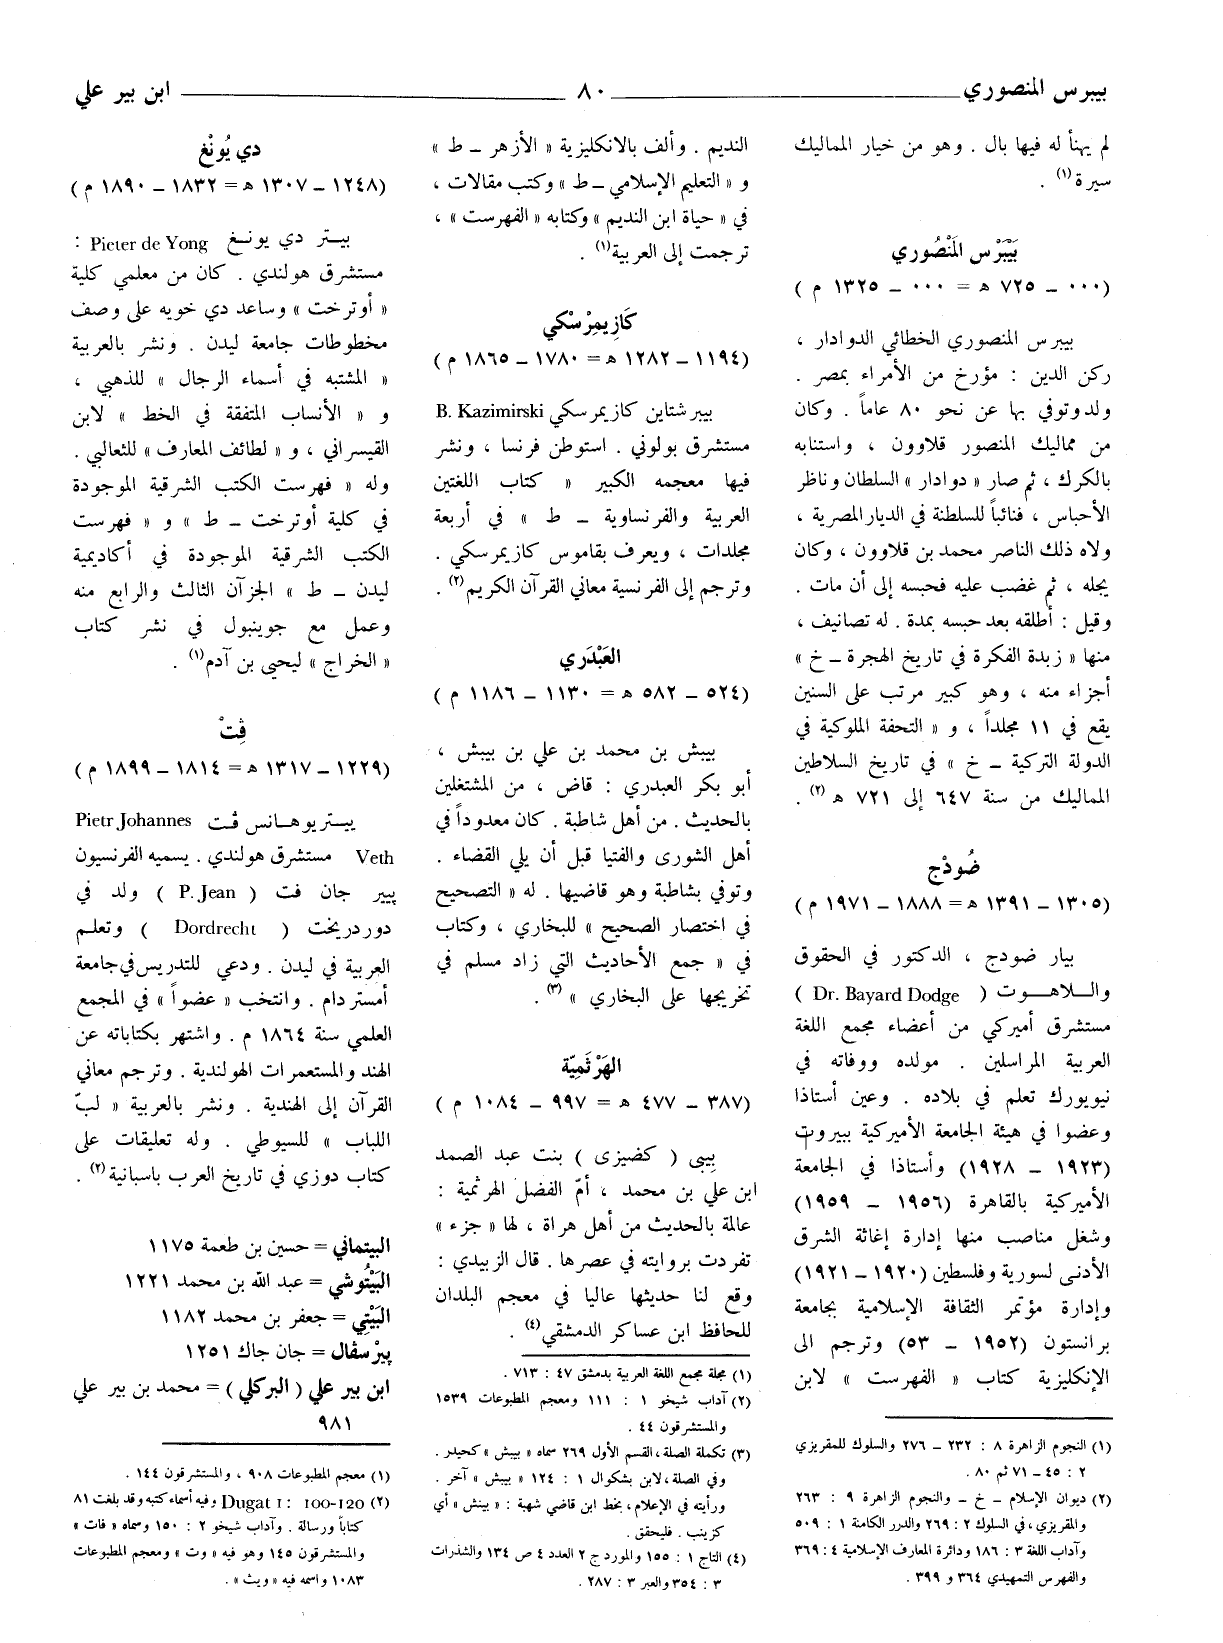 بيبرس المنصوري ــــــــ ٨٠ ــــــــ ابن بير علي
لم يهنأ له فيها بال . وهو من خيار المماليك
سيرة(١) .
بَيْبَرْس المَنْصُوري
(٠٠٠ ــ ٧٢٥ ه = ٠٠٠ ــ ١٣٢٥ م )
بيبرس المنصوري الخطائي الدوادار ،
ركن الدين : مؤرخ من الأمراء بمصر .
ولد وتوفي بها عن نحو ٨٠ عاماً . وكان
من مماليك المنصور قلاوون ، واستنابه
بالكرك ، ثم صار « دوادار » السلطان وناظر
الأحباس ، فنائباً للسلطنة في الديار المصرية ،
ولاه ذلك الناصر محمد بن قلاوون ، وكان
يجله ، ثم غضب عليه فحبسه إلى أن مات .
وقيل : أطلقه بعد حبسه بمدة . له تصانيف ،
منها « زبدة الفكرة في تاريخ الهجرة ــ خ »
أجزاء منه ، وهو كبير مرتب على السنين
يقع في ١١ مجلداً ، و « التحفة الملوكية في
الدولة التركية ــ خ » في تاريخ السلاطين
المماليك من سنة ٦٤٧ إلى ٧٢١ ه(٢) .
ضُودْج
(١٣٠٥ ــ ١٣٩١ ه = ١٨٨٨ ــ ١٩٧١ م )
بيار ضودج ، الدكتور في الحقوق
واللاهوت ( Dr. Bayard Dodge )
مستشرق أميركي من أعضاء مجمع اللغة
العربية المراسلين . مولده ووفاته في
نيويورك تعلم في بلاده . وعين أستاذا
وعضوا في هيئة الجامعة الأميركية ببيروت
(١٩٢٣ ــ ١٩٢٨) وأستاذا في الجامعة
الأميركية بالقاهرة (١٩٥٦ ــ ١٩٥٩)
وشغل مناصب منها إدارة إغاثة الشرق
الأدنى لسورية وفلسطين (١٩٢٠ ــ ١٩٢١)
وإدارة مؤتمر الثقافة الإسلامية بجامعة
برانستون (١٩٥٢ ــ ٥٣) وترجم الى
الإنكليزية كتاب « الفهرست » لابن
(١) النجوم الزاهرة ٨ : ٢٣٢ ــ ٢٧٦ والسلوك للمقريزي
٢ : ٤٥ ــ ٧١ ثم ٨٠ .
(٢) ديوان الإسلام ــ خ ــ والنجوم الزاهرة ٩ : ٢٦٣
والمقريزي ، في السلوك ٢ : ٢٦٩ والدرر الكامنة ١ : ٥٠٩
وآداب اللغة ٣ : ١٨٦ ودائرة المعارف الإسلامية ٤ : ٣٦٩
والفهرس التمهيدي ٣٦٤ و ٣٩٩ .
النديم . وألف بالانكليزية « الأزهر ــ ط »
و « التعليم الإسلامي ــ ط » وكتب مقالات ،
في « حياة ابن النديم » وكتابه « الفهرست » ،
ترجمت إلى العربية(١) .
كَازِيمِرْسْكي
(١١٩٤ ــ ١٢٨٢ ه = ١٧٨٠ ــ ١٨٦٥ م )
بيبرشتاين كازيمرسكي B. Kazimirski
مستشرق بولوني . استوطن فرنسا ، ونشر
فيها معجمه الكبير « كتاب اللغتين
العربية والفرنساوية ــ ط » في أربعة
مجلدات ، ويعرف بقاموس كازيمرسكي .
وترجم إلى الفرنسية معاني القرآن الكريم(٢) .
العَبْدَري
(٥٢٤ ــ ٥٨٢ ه = ١١٣٠ ــ ١١٨٦ م )
بيبش بن محمد بن علي بن بيبش ،
أبو بكر العبدري : قاض ، من المشتغلين
بالحديث . من أهل شاطبة . كان معدوداً في
أهل الشورى والفتيا قبل أن يلي القضاء .
وتوفي بشاطبة وهو قاضيها . له « التصحيح
في اختصار الصحيح » للبخاري ، وكتاب
في « جمع الأحاديث التي زاد مسلم في
تخريجها على البخاري » (٣) .
الهَرْثَمِيّة
(٣٨٧ ــ ٤٧٧ ه = ٩٩٧ ــ ١٠٨٤ م )
بِيبى ( كضيزى ) بنت عبد الصمد
ابن علي بن محمد ، أمّ الفضل الهرثمية :
عالمة بالحديث من أهل هراة ، لها « جزء »
تفردت بروايته في عصرها . قال الزبيدي :
وقع لنا حديثها عاليا في معجم البلدان
للحافظ ابن عساكر الدمشقي(٤) .
(١) مجلة مجمع اللغة العربية بدمشق ٤٧ : ٧١٣ .
(٢) آداب شيخو ١ : ١١١ ومعجم المطبوعات ١٥٣٩
والمستشرقون ٤٤ .
(٣) تكملة الصلة، القسم الأول ٢٦٩ سماه « بيبش » كحيدر .
وفي الصلة، لابن بشكوال ١ : ١٢٤ « بيبش » آخر .
ورأيته في الإعلام، بخط ابن قاضي شهبة : « بينش » أي
كزينب . فليحقق .
(٤) التاج ١ : ١٥٥ والمورد ج ٢ العدد ٤ ص ١٣٤ والشذرات
٣ : ٣٥٤ والعبر ٣ : ٢٨٧ .
دي يُونْغ
(١٢٤٨ ــ ١٣٠٧ ه = ١٨٣٢ ــ ١٨٩٠ م )
بيتر دي يونغ Pieter de Yong :
مستشرق هولندي . كان من معلمي كلية
« أوترخت » وساعد دي خويه على وصف
مخطوطات جامعة ليدن . ونشر بالعربية
« المشتبه في أسماء الرجال » للذهبي ،
و « الأنساب المتفقة في الخط » لابن
القيسراني ، و « لطائف المعارف » للثعالبي .
وله « فهرست الكتب الشرقية الموجودة
في كلية أوترخت ــ ط » و « فهرست
الكتب الشرقية الموجودة في أكاديمية
ليدن ــ ط » الجزآن الثالث والرابع منه
وعمل مع جوينبول في نشر كتاب
« الخراج » ليحيى بن آدم(١) .
ڤِتْ
(١٢٢٩ ــ ١٣١٧ ه = ١٨١٤ ــ ١٨٩٩ م )
بيتر يوهانس ڤت Pietr Johannes
Veth مستشرق هولندي . يسميه الفرنسيون
پيير جان ڤت ( P. Jean ) ولد في
دوردريخت ( Dordrecht ) وتعلم
العربية في ليدن . ودعي للتدريس في جامعة
أمستردام . وانتخب « عضواً » في المجمع
العلمي سنة ١٨٦٤ م . واشتهر بكتاباته عن
الهند والمستعمرات الهولندية . وترجم معاني
القرآن إلى الهندية . ونشر بالعربية « لبّ
اللباب » للسيوطي . وله تعليقات على
كتاب دوزي في تاريخ العرب باسبانية(٢) .
البيتماني = حسين بن طعمة ١١٧٥
البَيْتُوشي = عبد الله بن محمد ١٢٢١
البَيْتِي = جعفر بن محمد ١١٨٢
پيرْسڤال = جان جاك ١٢٥١
ابن بير علي ( البركلي ) = محمد بن بير علي
٩٨١
(١) معجم المطبوعات ٩٠٨ ، والمستشرقون ١٤٤ .
(٢) Dugat I : 100-120 وفيه أسماء كتبه وقد بلغت ٨١
كتاباً ورسالة . وآداب شيخو ٢ : ١٥٠ وسماه « فات »
والمستشرقون ١٤٥ وهو فيه « وت » ومعجم المطبوعات
١٠٨٣ واسمه فيه « ويث » .